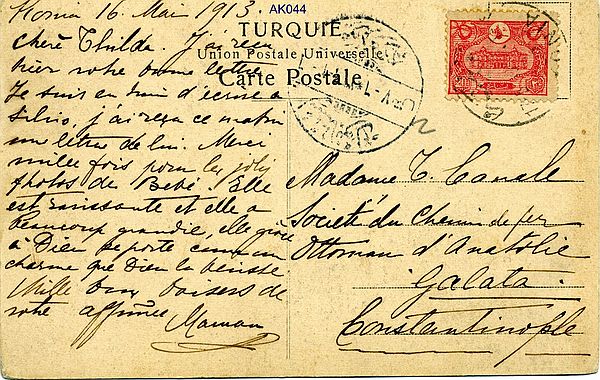 Konia 16 Mai 1913
AK044
TURQUIE
Union Postale Universelle
Carte Postale
Chère Thilda. J'ai reçu
hier votre bonne lettre
Je suis en train d'écrire a
Silvio, j'ai reçu ce matin
une lettre de lui. Merci
mille fois pour les jolis
photos de Bébé. Elle
est ravissante et elle a
beaucoup grandie, elle grâce
à Dieu se porte comme un
charme que Dieu la bénisse
Mille bons baisers de
votre affnée Maman
Madame T. Canale
Société du Chemin de fer
Ottoman d'Anatolie
Galata.
Constantinople